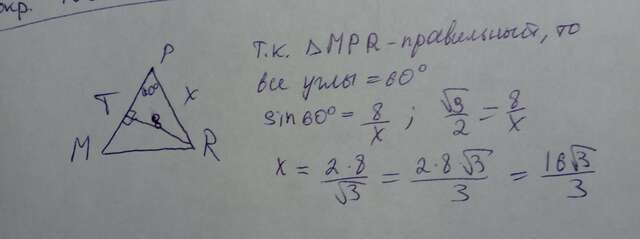 окр.
P
60°
T
x
8
M
R
т.к. △MPR-правильный, то
все углы = 60°
sin60° = 8/x ; √3/2 = 8/x
x = 2·8/√3 = 2·8√3/3 = 16√3/3